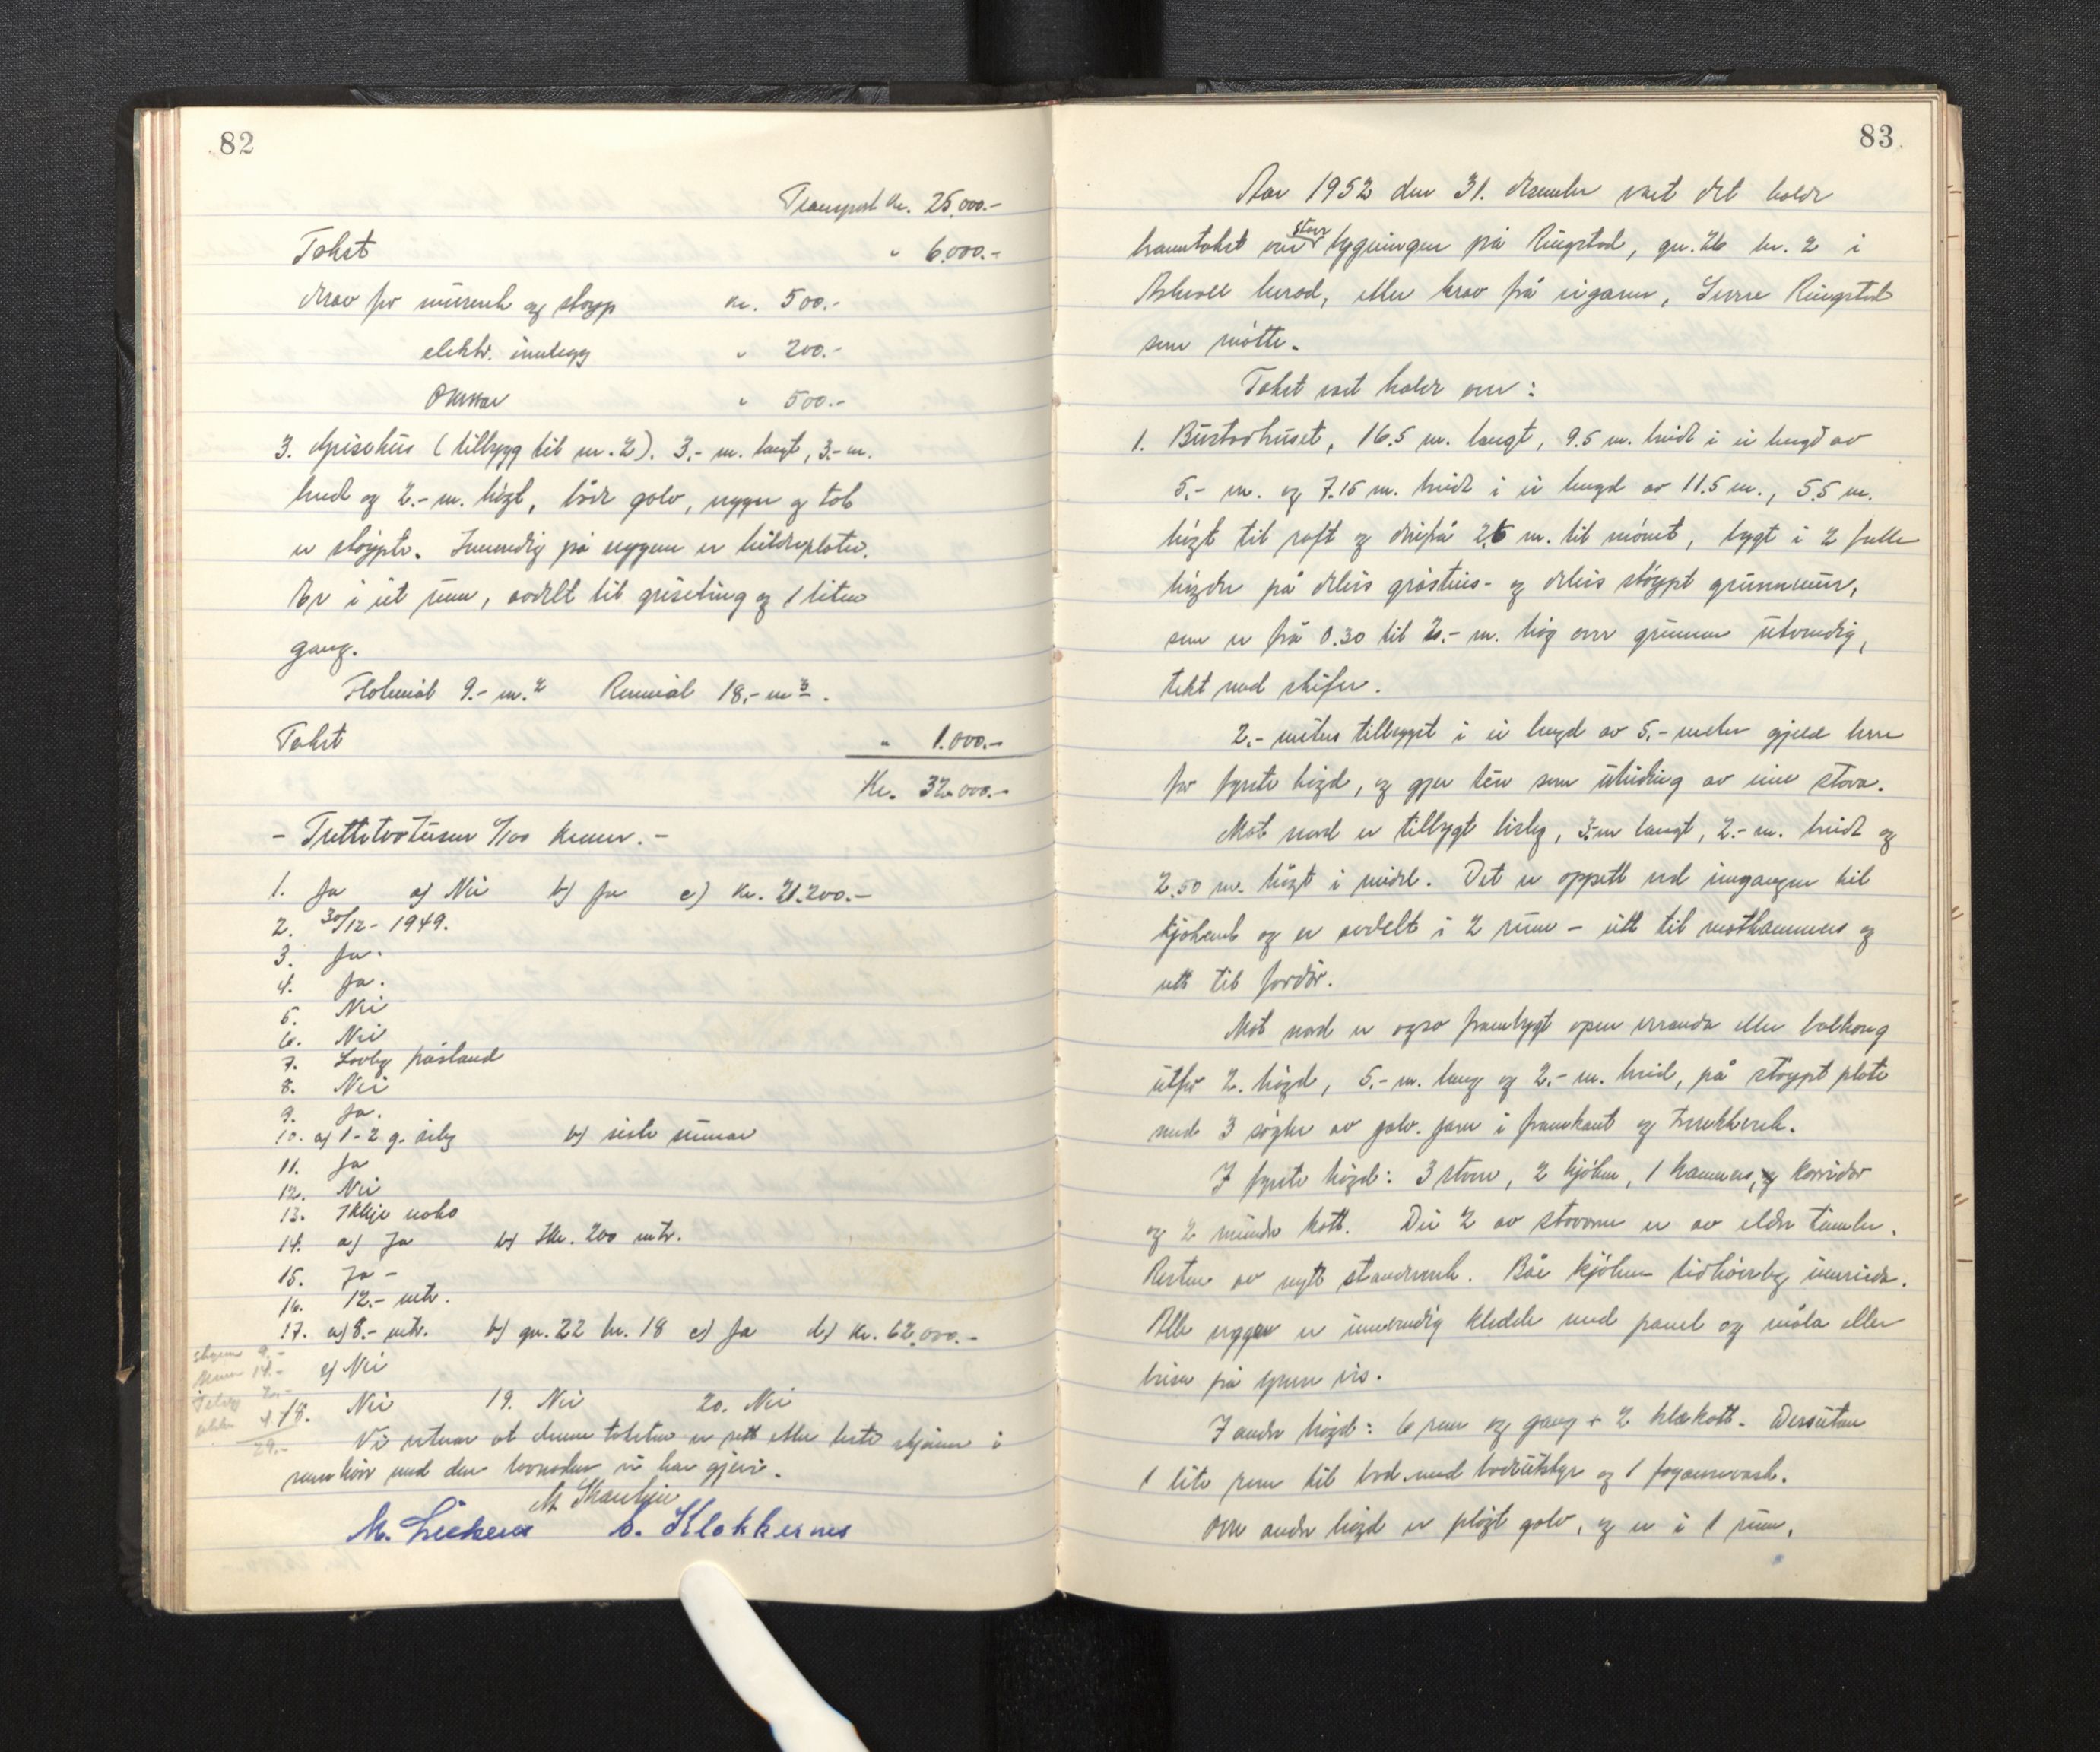 82
Transport kr. 25.000.-
Takst " 6.000.-
Derav for murverk og støyp kr. 500.-
elektr. innlegg " 200.-
" 500.-
3. Grisehus (tilbygg til nr. 2). 3.- m. langt, 3.- m.
breidt og 2.- m. högt, både golv, vegger og tak
er støypte. Innvendig på veggene er
Er i eit rum, avdelt til grisebing og 1 liten
gang.
Flatemål 9.- m.2 Rummål 18.- m3.
Takst " 1.000.-
Kr. 32.000.-
- Trettitotusen 0/100 kroner. -
1. Ja a) Nei b) Ja c) kr. 21.200.-
2. 30/12 - 1949.
3. Ja.
4. Ja.
5. Nei
6. Nei
7. Lovleg påstand
8. Nei
9. Ja.
10. a) 1-2 g. årleg b) siste sumar
11. Ja
12. Nei
13. Ikkje noko
14. a) Ja b) 200 mtr.
15. Ja -
16. 12.- mtr.
17. a) 8.- mtr. b) gn. 22 br. 18 c) Ja d) kr. 62.000.-
e) Nei
18. Nei 19. Nei 20. Nei
9.-
14.-
29.-
Vi at denne taksten er sett etter beste skjønn i
samhøve med den vi har gjeve.
M. C. Klokkernes
83
Aar 1952 den 31. desember vart det halde
branntakst over stove bygningen på Ringstad, gn. 26 br. 2 i
Askvoll herad, etter krav frå eigaren, Sverre Ringstad
som møtte.
Takst vart halde over:
1. Bustadhuset, 16.5 m. langt, 9.5 m. breidt i ei lengd av
5.- m. og 7.15 m. breidt i ei lengd av 11.5 m., 5.5 m.
högt til raft og derifrå 2.5 m. til mønet, bygt i 2 fulle
högder på delvis gråsteins- og delvis støypt grunnmur,
som er frå 0.30 til 2.- m. hög over grunnen utvendig,
tekt med skifer.
2.- meters tilbygget i ei lengd av 5.- meter gjeld berre
for fyrste högd, og gjer ten som utviding av eine stova.
Mot nord er tilbygt bislag, 3.- m langt, 2.- m. breidt og
2.50 m. högt i midel. Det er oppsett ved inngangen til
kjøkenet og er avdelt i 2 rum - eitt til matkammers og
eitt til fordör.
Mot nord er også frambygt open veranda eller balkong
utfor 2. högd, 5.- m. lang og 2.- m. breid, på støypt plate
med 3 søyler av galv. jarn i framkant og trerekkverk.
I fyrste högd: 3 stover, 2 kjøken, 1 kammers, og korridor
og 2 mindre kott. Dei 2 av stovorne er av eldre timber.
Resten av nytt standverk. Båe kjøken tidhøveleg innreidd.
Alle veggar er innvendig kledde med panel og måla eller
på grunn vis.
I andre högd: 6 rum og gang + 2 klekott. Dessutan
1 lite rum til bad med badeutstyr og 1
Over andre högd er pløgt golv, og er i 1 rum,